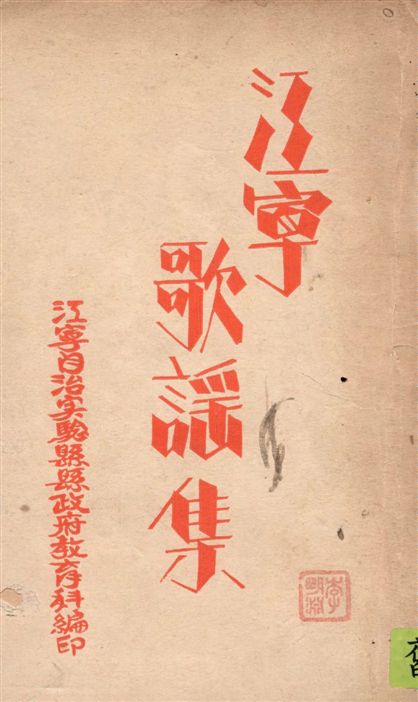 江寧
歌謠集
江寧自治实驗縣縣政府教育科編印